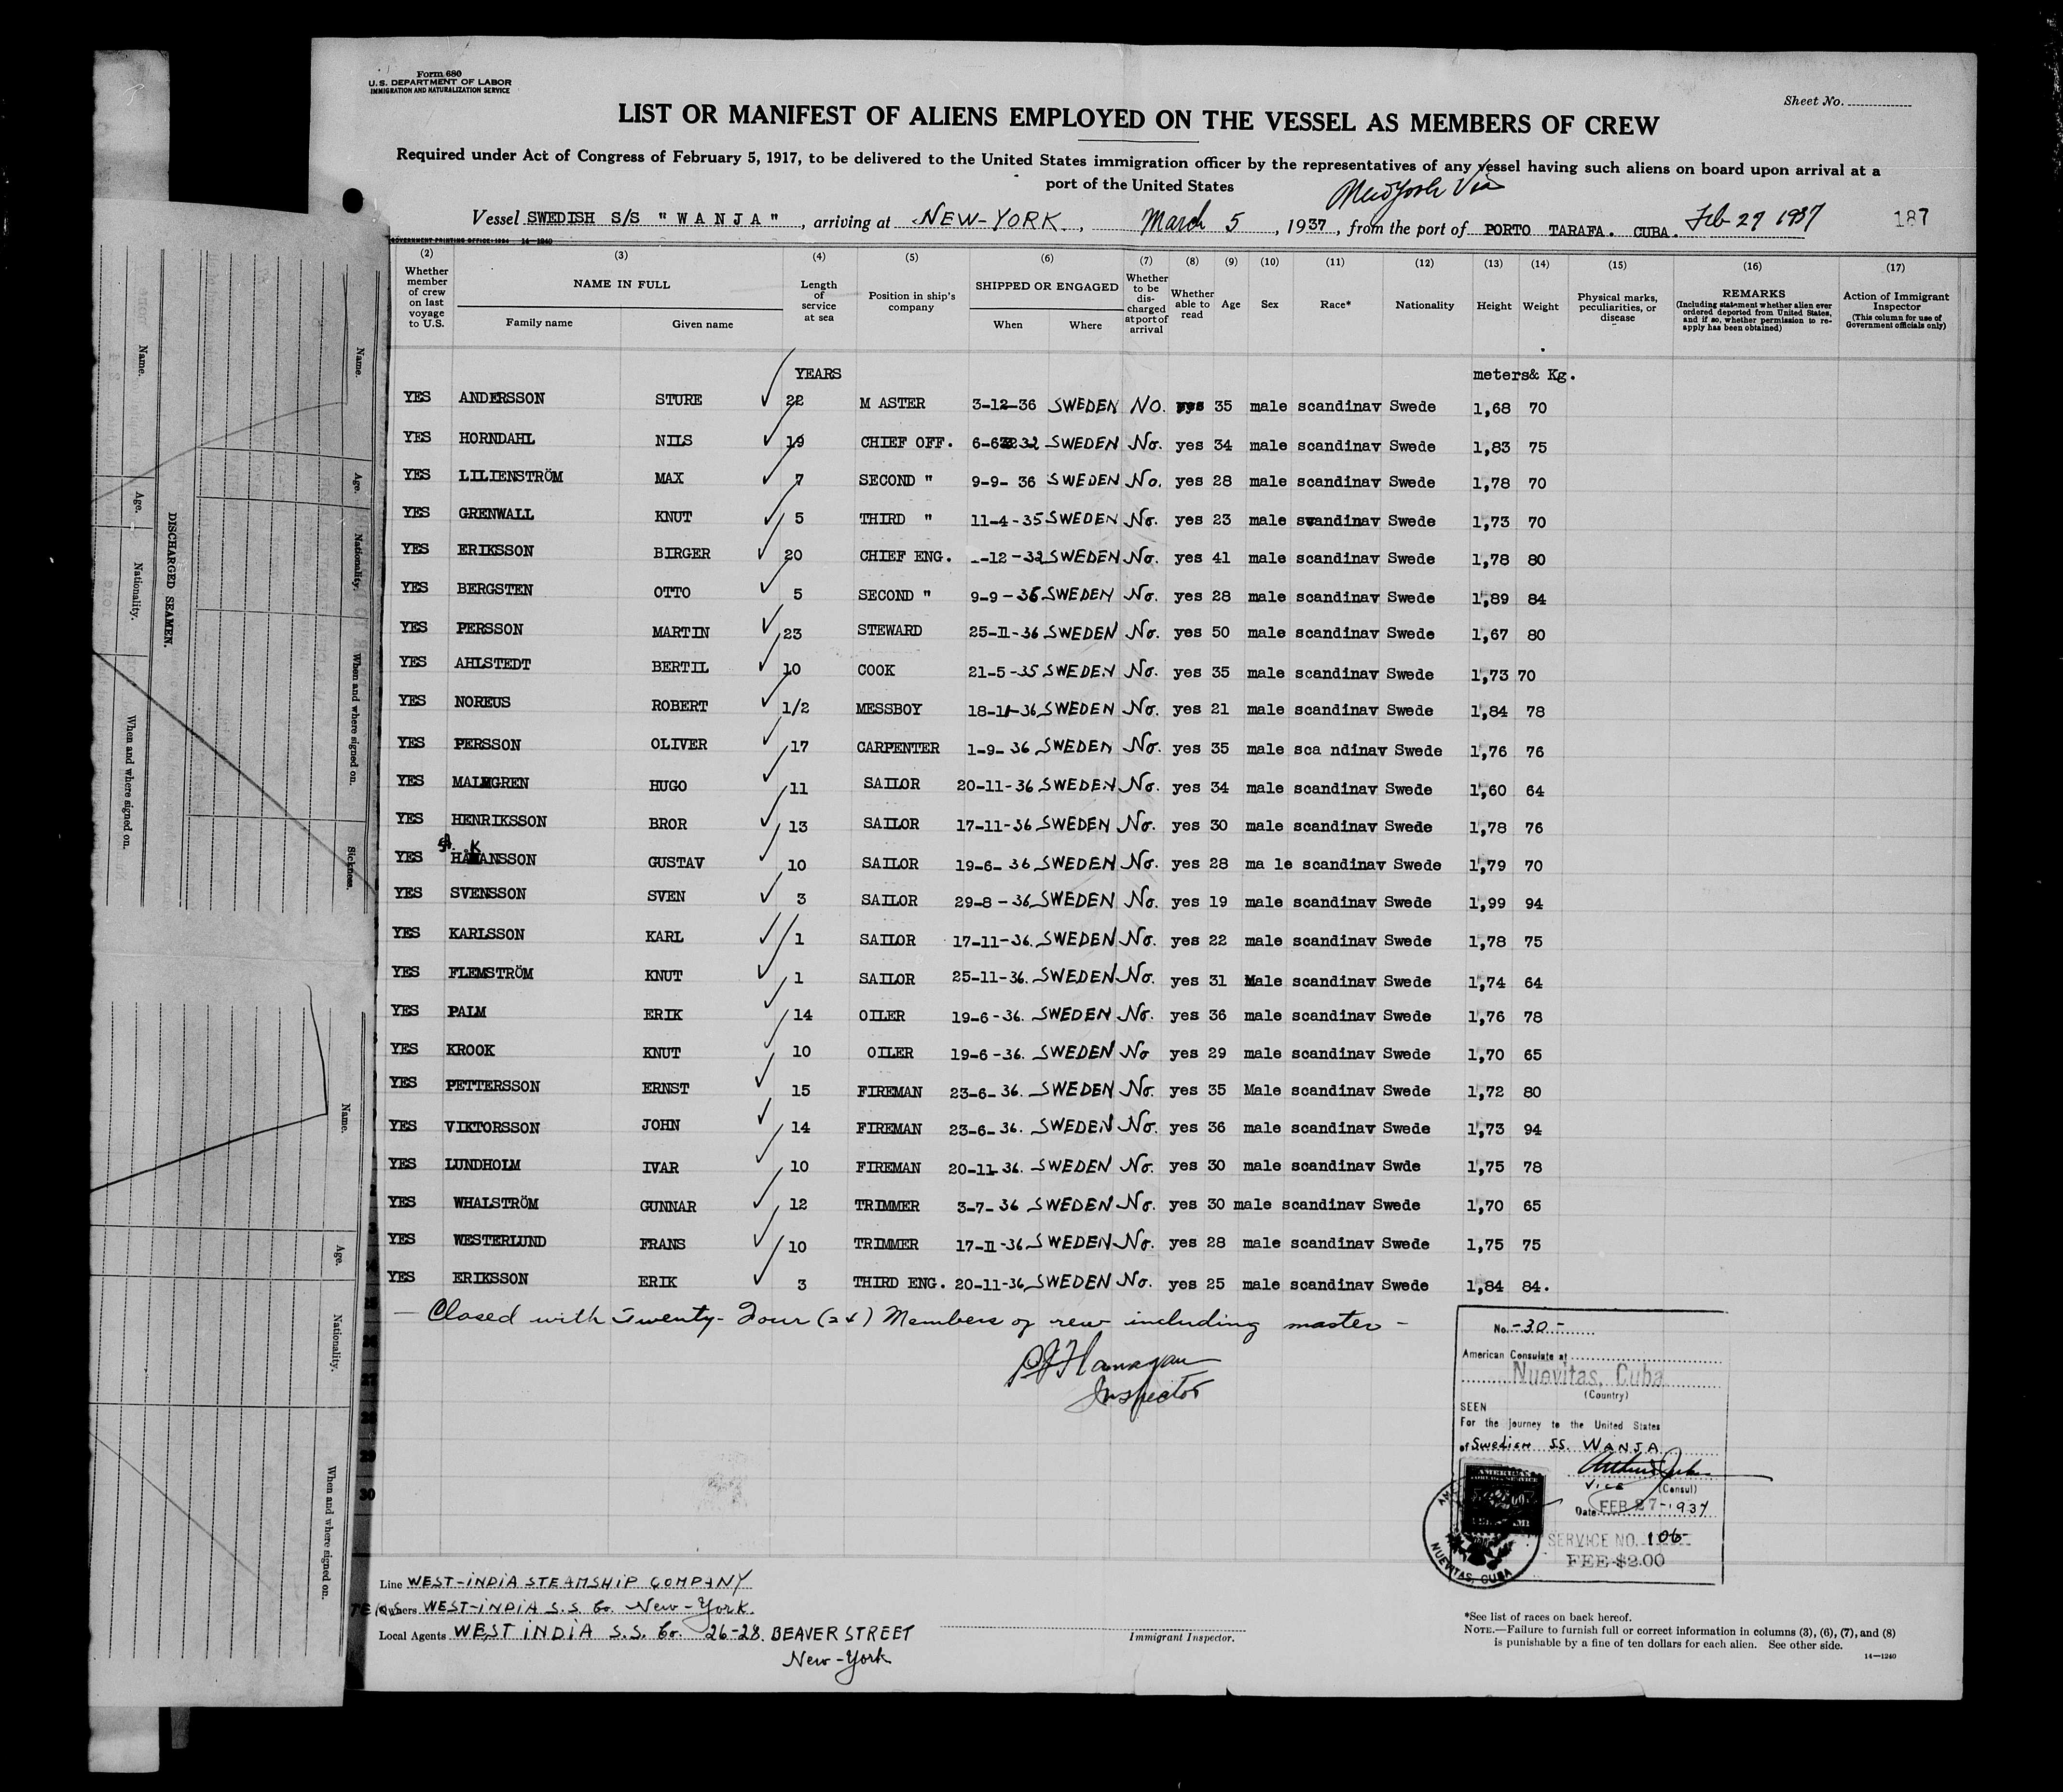 Form 680
U.S. DEPARTMENT OF LABOR
IMMIGRATION AND NATURALIZATION SERVICE
Sheet No.
LIST OR MANIFEST OF ALIENS EMPLOYED ON THE VESSEL AS MEMBERS OF CREW
Required under Act of Congress of February 5, 1917, to be delivered to the United States immigration officer by the representatives of any vessel having such aliens on board upon arrival at a
port of the United States
New York Via
Vessel SWEDISH S/S "WANJA", arriving at NEW-YORK, March 5, 1937, from the port of PORTO TARAFA. CUBA. Feb 27 1937 187
GOVERNMENT PRINTING OFFICE: 14-1240
(2) (3) (4) (5) (6) (7) (8) (9) (10) (11) (12) (13) (14) (15) (16) (17)
Whether member of crew on last voyage to U.S. NAME IN FULL Family name Given name Length of service at sea Position in ship's company SHIPPED OR ENGAGED When Where Whether to be discharged at port of arrival Whether able to read Age Sex Race* Nationality Height Weight Physical marks, peculiarities, or disease REMARKS (Including statement whether alien ever ordered deported from United States, and if so, whether permission to reapply has been obtained) Action of Immigrant Inspector (This column for use of Government officials only)
YEARS meters& Kg.
YES ANDERSSON STURE 22 M ASTER 3-12-36 SWEDEN NO. yes 35 male scandinav Swede 1,68 70
YES HORNDAHL NILS 19 CHIEF OFF. 6-6 32 SWEDEN No. yes 34 male scandinav Swede 1,83 75
YES LILIENSTRÖM MAX 7 SECOND " 9-9- 36 SWEDEN No. yes 28 male scandinav Swede 1,78 70
YES GRENWALL KNUT 5 THIRD " 11-4-35 SWEDEN No. yes 23 male scandinav Swede 1,73 70
YES ERIKSSON BIRGER 20 CHIEF ENG. -12-32 SWEDEN No. yes 41 male scandinav Swede 1,78 80
YES BERGSTEN OTTO 5 SECOND " 9-9-36 SWEDEN No. yes 28 male scandinav Swede 1,89 84
YES PERSSON MARTIN 23 STEWARD 25-II-36 SWEDEN No. yes 50 male scandinav Swede 1,67 80
YES AHLSTEDT BERTIL 10 COOK 21-5-35 SWEDEN No. yes 35 male scandinav Swede 1,73 70
YES NOREUS ROBERT 1/2 MESSBOY 18-11-36 SWEDEN No. yes 21 male scandinav Swede 1,84 78
YES PERSSON OLIVER 17 CARPENTER 1-9-36 SWEDEN No. yes 35 male sca ndinav Swede 1,76 76
YES MALMGREN HUGO 11 SAILOR 20-11-36 SWEDEN No. yes 34 male scandinav Swede 1,60 64
YES HENRIKSSON BROR 13 SAILOR 17-11-36 SWEDEN No. yes 30 male scandinav Swede 1,78 76
YES HÅKANSSON GUSTAV 10 SAILOR 19-6-36 SWEDEN No. yes 28 ma le scandinav Swede 1,79 70
YES SVENSSON SVEN 3 SAILOR 29-8-36 SWEDEN No. yes 19 male scandinav Swede 1,99 94
YES KARLSSON KARL 1 SAILOR 17-11-36. SWEDEN No. yes 22 male scandinav Swede 1,78 75
YES FLEMSTRÖM KNUT 1 SAILOR 25-11-36. SWEDEN No. yes 31 Male scandinav Swede 1,74 64
YES PALM ERIK 14 OILER 19-6-36. SWEDEN No. yes 36 male scandinav Swede 1,76 78
YES KROOK KNUT 10 OILER 19-6-36. SWEDEN No yes 29 male scandinav Swede 1,70 65
YES PETTERSSON ERNST 15 FIREMAN 23-6-36. SWEDEN No. yes 35 Male scandinav Swede 1,72 80
YES VIKTORSSON JOHN 14 FIREMAN 23-6-36. SWEDEN No. yes 36 male scandinav Swede 1,73 94
YES LUNDHOLM IVAR 10 FIREMAN 20-11-36. SWEDEN No. yes 30 male scandinav Swde 1,75 78
YES WHALSTRÖM GUNNAR 12 TRIMMER 3-7-36 SWEDEN No. yes 30 male scandinav Swede 1,70 65
YES WESTERLUND FRANS 10 TRIMMER 17-II-36 SWEDEN No. yes 28 male scandinav Swede 1,75 75
YES ERIKSSON ERIK 3 THIRD ENG. 20-11-36 SWEDEN No. yes 25 male scandinav Swede 1,84 84.
— Closed with Twenty-Four (24) Members of crew including master —
Flanagan
Inspector
No. -30-
American Consulate at
Nuevitas, Cuba
(Country)
SEEN
For the journey to the United States
of Swedish SS. WANJA
Vice (Consul)
Date FEB 27-1937
SERVICE NO. 106
FEE $2.00
AMERICAN
NUEVITAS, CUBA
26
27
28
29
30
Line WEST-INDIA STEAMSHIP COMPANY
Owners WEST-INDIA S.S. Co. New-York.
Local Agents WEST INDIA S.S. Co. 26-28. BEAVER STREET
New-York
Immigrant Inspector.
*See list of races on back hereof.
NOTE.—Failure to furnish full or correct information in columns (3), (6), (7), and (8)
is punishable by a fine of ten dollars for each alien. See other side.
14-1240
DISCHARGED SEAMEN.
Name. Age. Nationality. When and where signed on.
Name. Age. Nationality. When and where signed on. Sickness.
Name. Age. Nationality. When and where signed on.